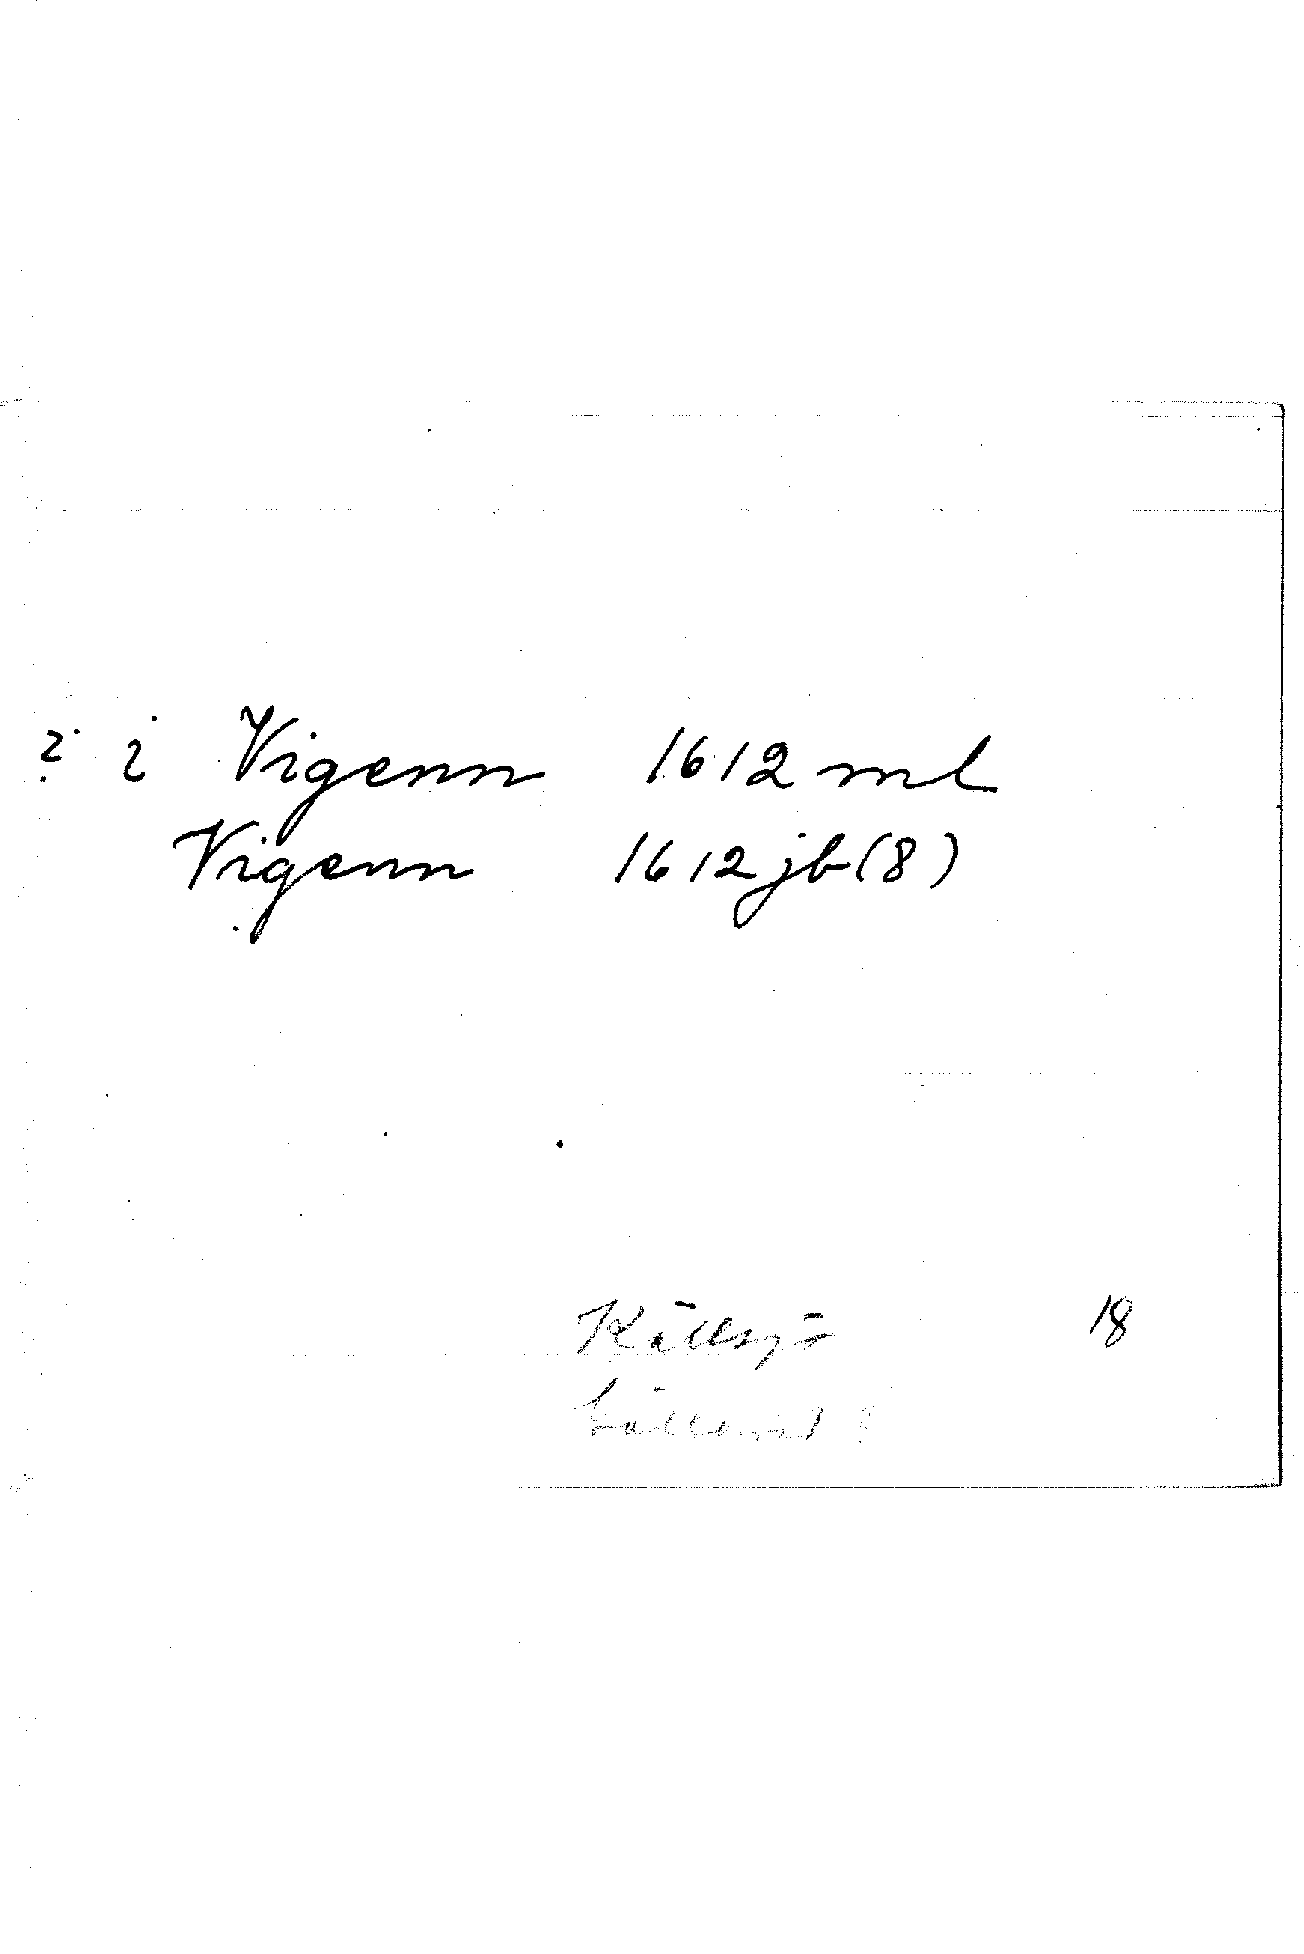 ? i Vigenn 1612 ml
Vigenn 1612 jb (8)
Källsjö 18